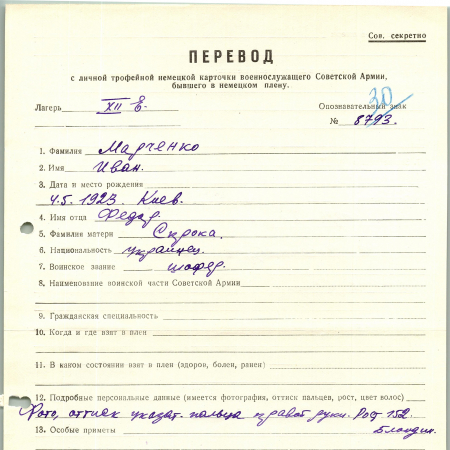 Сов. секретно
ПЕРЕВОД
с личной трофейной немецкой карточки военнослужащего Советской Армии,
бывшего в немецком плену.
30
Лагерь XII Е. Опознавательный знак
№ 8793.
1. Фамилия Марченко
2. Имя Иван.
3. Дата и место рождения
4.5.1923. Киев.
4. Имя отца Федор.
5. Фамилия матери Скрока.
6. Национальность украинец.
7. Воинское звание шофер.
8. Наименование воинской части Советской Армии
9. Гражданская специальность
10. Когда и где взят в плен
11. В каком состоянии взят в плен (здоров, болен, ранен)
12. Подробные персональные данные (имеется фотография, оттиск пальцев, рост, цвет волос)
Фото, оттиск указат. пальца правой руки. Рост 152.
13. Особые приметы Блондин.